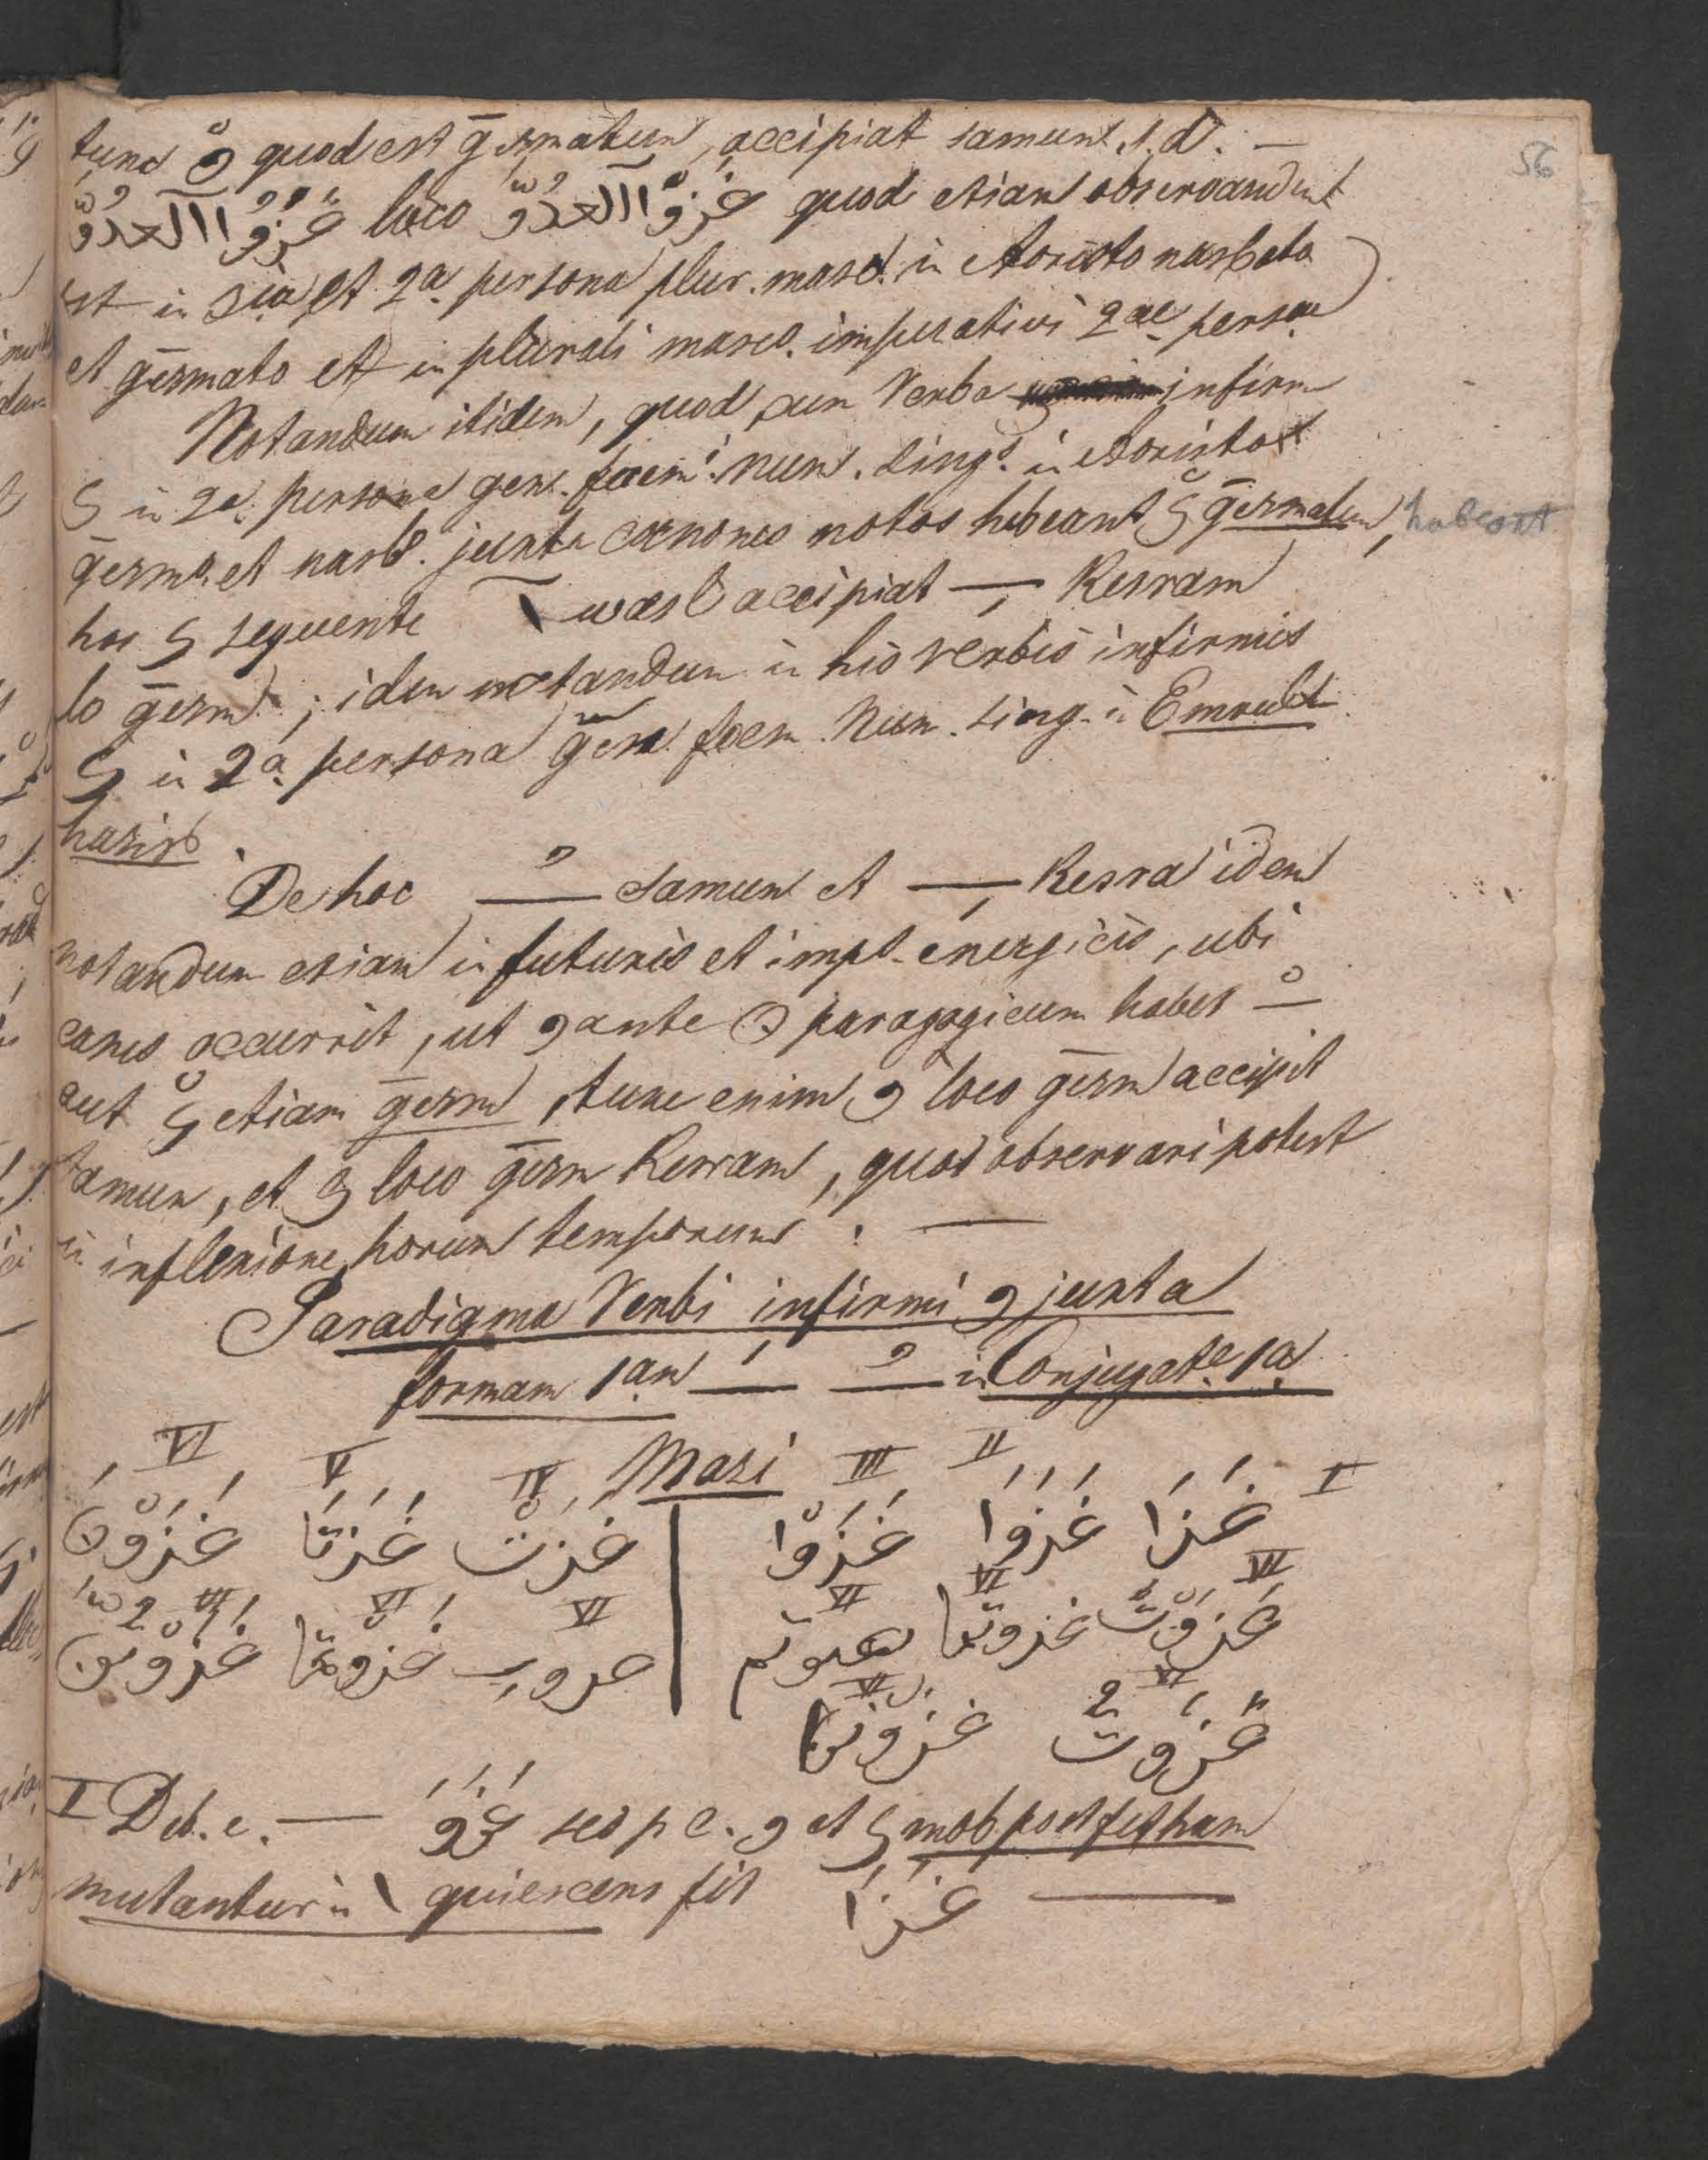 56
tunc وْ quod est ḡesmatum, accipiat samum s. d. —
غَزَوُا ٱلْعَدُوَّ loco غَزَوْا ٱلْعَدُوَّ quod etiam observandum
est in 3ia et 2a persona plur. masc. in Aoristo nasbato
et ḡesmato et in plurali masc. imperativi 2ae persae
Notandum itidem, quod cum Verba infirm
ی in 2a persona gen. foem. Num. sing. in Aoristo
ḡesm. et nasb. juxta canones notos habeant یْ ḡesmatum, habeant
hoc ی sequente ٱ wasl accipiat — Kesram
lo ḡesm; idem notandum in his verbis infirmis
ی in 2a persona gen. foem. Num. sing. in Emrulh
hazirb.
De hoc —ُ samum et —ِ Kesra idem
notandum etiam in futuris et impt. energicis, ubi
casus occurrit, ut و ante ن paragogicum habet —ْ
aut یْ etiam ḡesm, tunc enim و loco ḡesm accipit
samum, et ی loco ḡesm Kesram, quod observari potest
in inflexione horum temporum. —
Paradigma Verbi infirmi و juxta
formam 1am —َ —ُ in Conjugate. 1a
VI V IV Mazi III II I
غَزَا غَزَوَا غَزَوْا | غَزَتْ غَزَتَا غَزَوْنَ
VI VI VI VI VI VII
غَزَوْتَ غزوتما | غَزَوْتُمَا غَزَوْتُنَّ
VI VI
غَزَوْتُ غَزَوْنَا
I Deb. e. — غَزَوَ sed p c. و et ی mob post fetham
mutantur in ا quiescens fit غَزَا —